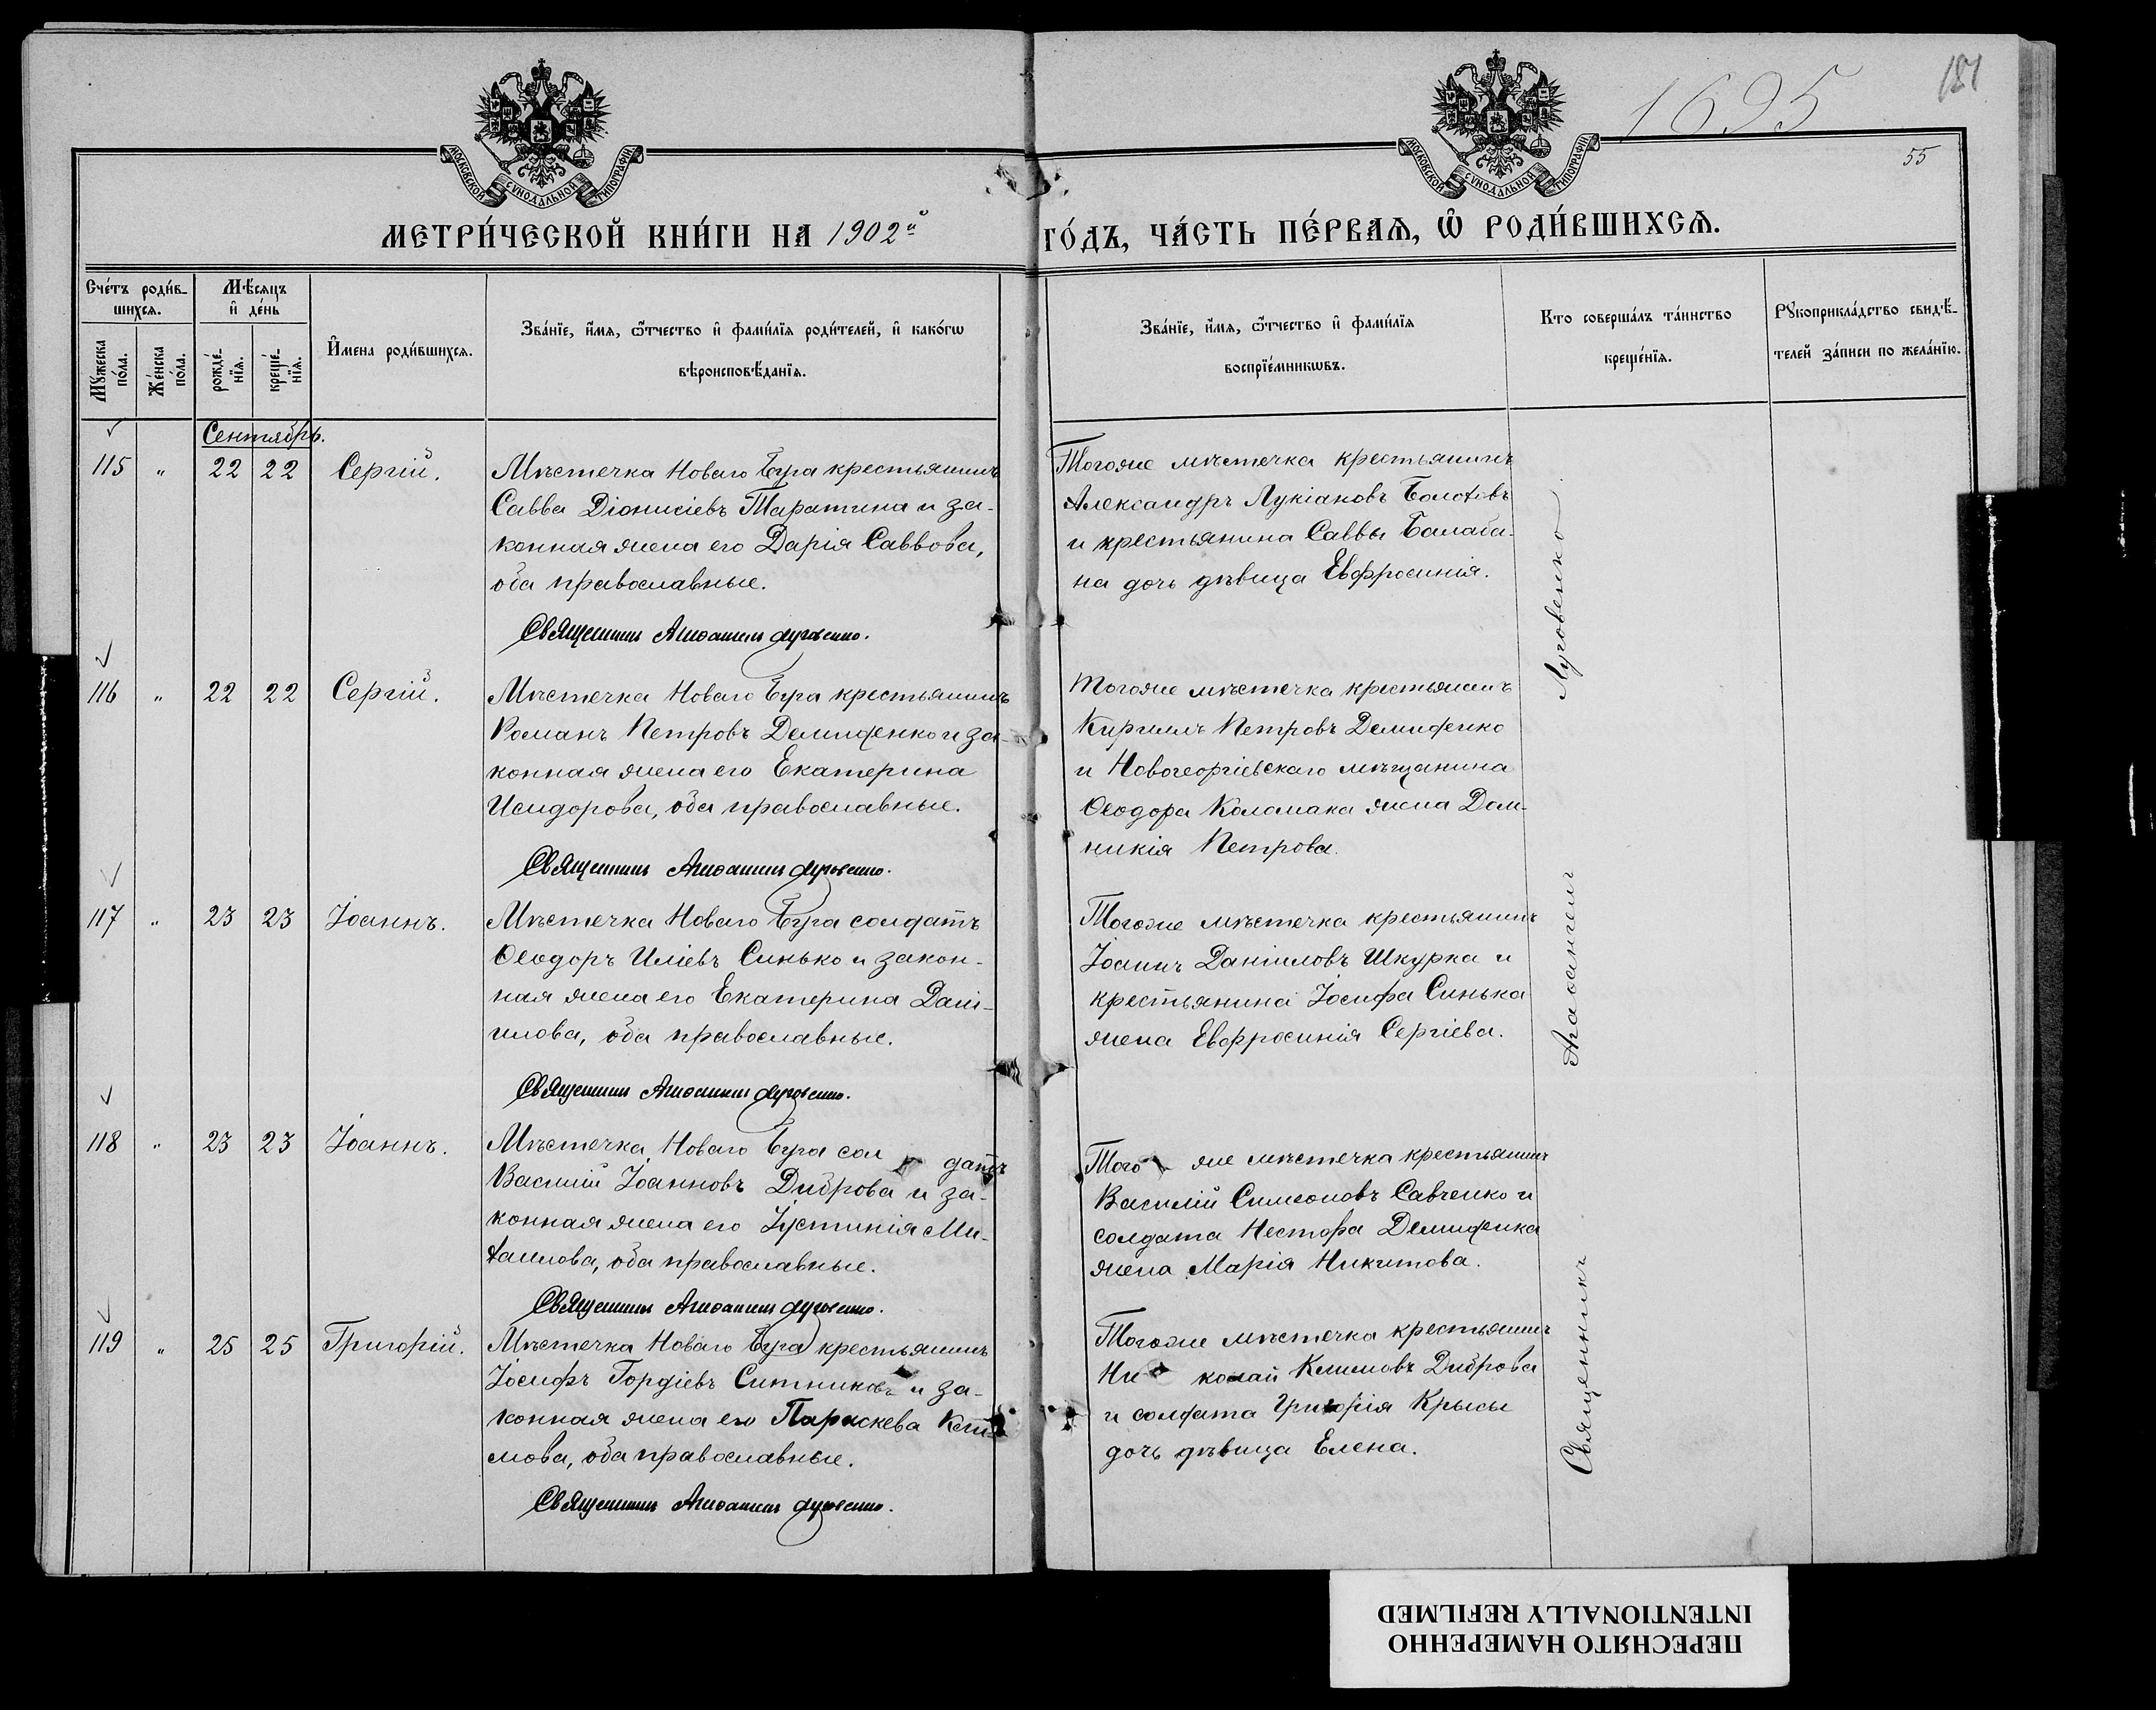 1695
181
55
МОСКОВСКОЙ СѴНОДАЛЬНОЙ ТИПОГРАФІИ
МОСКОВСКОЙ СѴНОДАЛЬНОЙ ТИПОГРАФІИ
МЕТРИ́ЧЕСКОЙ КНИ́ГИ НА 1902й ГО́ДЪ, ЧА́СТЬ ПЕ́РВАѦ, Ѽ РОДИ́ВШИХСѦ.
Сче́тъ роди́в-
шихсѧ.
Мѣ́сѧцъ
и҆ де́нь
Мꙋжеска по́ла.
Же́нска по́ла.
рожде́-
нїѧ.
креще́-
нїѧ.
И҆мена роди́вшихсѧ.
Зва́нїе, и҆́мѧ, ѻ҆́тчество и҆ фами́лїѧ роди́телей, и҆ како́гѡ
вѣроисповѣ́данїѧ.
Зва́нїе, и҆́мѧ, ѻ҆́тчество и҆ фами́лїѧ
воспрїе́мникѡвъ.
Кто соверша́лъ та́инство
креще́нїѧ.
Рꙋкоприкла́дство свидѣ́-
телей за́писи по жела́нїю.
Сентябрь.
115 " 22 22 Сергій.
Мѣстечка Новаго Буга крестьянинъ
Савва Діонисіевъ Таратина и за-
конная жена его Дарія Саввова,
оба православные.
Священникъ Агаѳангелъ Луговенко.
Тогоже мѣстечка крестьянинъ
Александръ Лукіановъ Болотовъ
и крестьянина Саввы Балаба-
на дочь дѣвица Евфросинія.
116 " 22 22 Сергій.
Мѣстечка Новаго Буга крестьянинъ
Романъ Петровъ Демиденко и за-
конная жена его Екатерина
Исидорова, оба православные.
Священникъ Агаѳангелъ Луговенко.
Тогоже мѣстечка крестьянинъ
Кириллъ Петровъ Демиденко
и Новогеоргіевскаго мѣщанина
Ѳеодора Коломака жена Дом-
никія Петрова.
117 " 23 23 Іоаннъ.
Мѣстечка Новаго Буга солдатъ
Ѳеодоръ Иліевъ Синько и закон-
ная жена его Екатерина Дані-
илова, оба православные.
Священникъ Агаѳангелъ Луговенко.
Тогоже мѣстечка крестьянинъ
Іоаннъ Даніиловъ Шкурка и
крестьянина Іосифа Синька
жена Евфросинія Сергіева.
118 " 23 23 Іоаннъ.
Мѣстечка Новаго Буга солдатъ
Василій Іоанновъ Диброва и за-
конная жена его Іустинія Ми-
хаилова, оба православные.
Священникъ Агаѳангелъ Луговенко.
Тогоже мѣстечка крестьянинъ
Василій Симеоновъ Савченко и
солдата Нестора Демиденка
жена Марія Никитова.
119 " 25 25 Григорій.
Мѣстечка Новаго Буга крестьянинъ
Іосифъ Гордіевъ Ситниковъ и за-
конная жена его Параскева
мова, оба православные.
Священникъ Агаѳангелъ Луговенко.
Тогоже мѣстечка крестьянинъ
Николай Климовъ Диброва
и солдата Григорія Крысы
дочь дѣвица Елена.
Священникъ Агаѳангелъ Луговенко.
ПЕРЕСНЯТО НАМЕРЕННО
INTENTIONALLY REFILMED